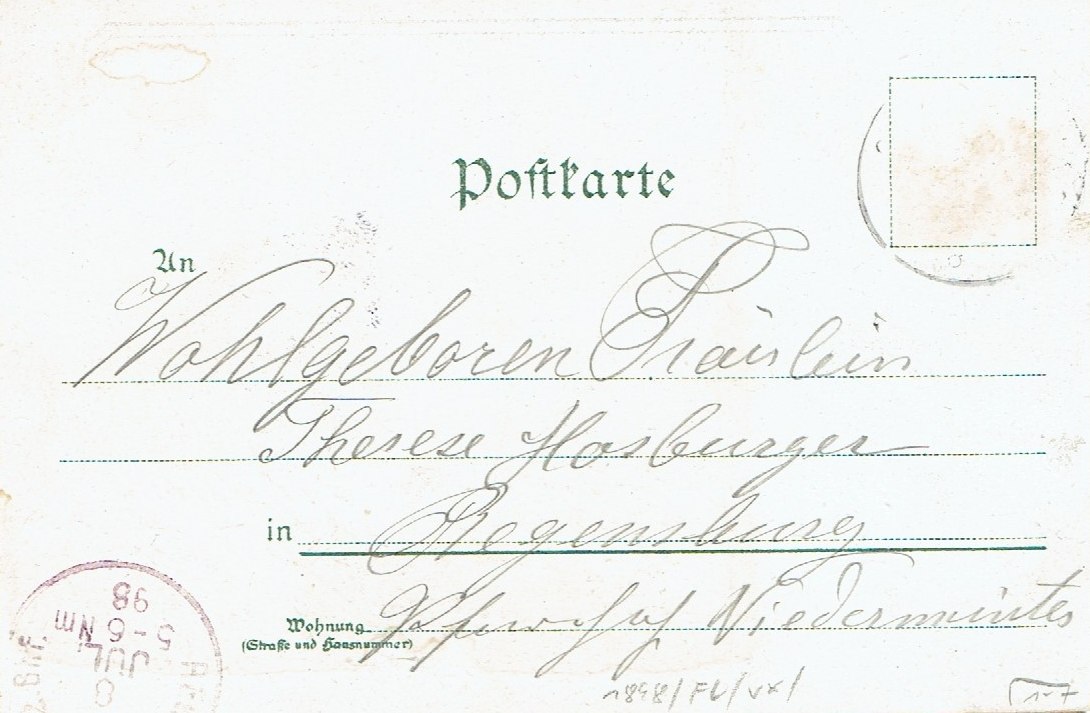 Postkarte
An
Wohlgeboren Fräulein
Therese Hosburger
in Regensburg
Wohnung Pfarrhof Niedermünster
(Straße und Hausnummer)
98
5-6 Nm
JUL
1898/FL/VX/